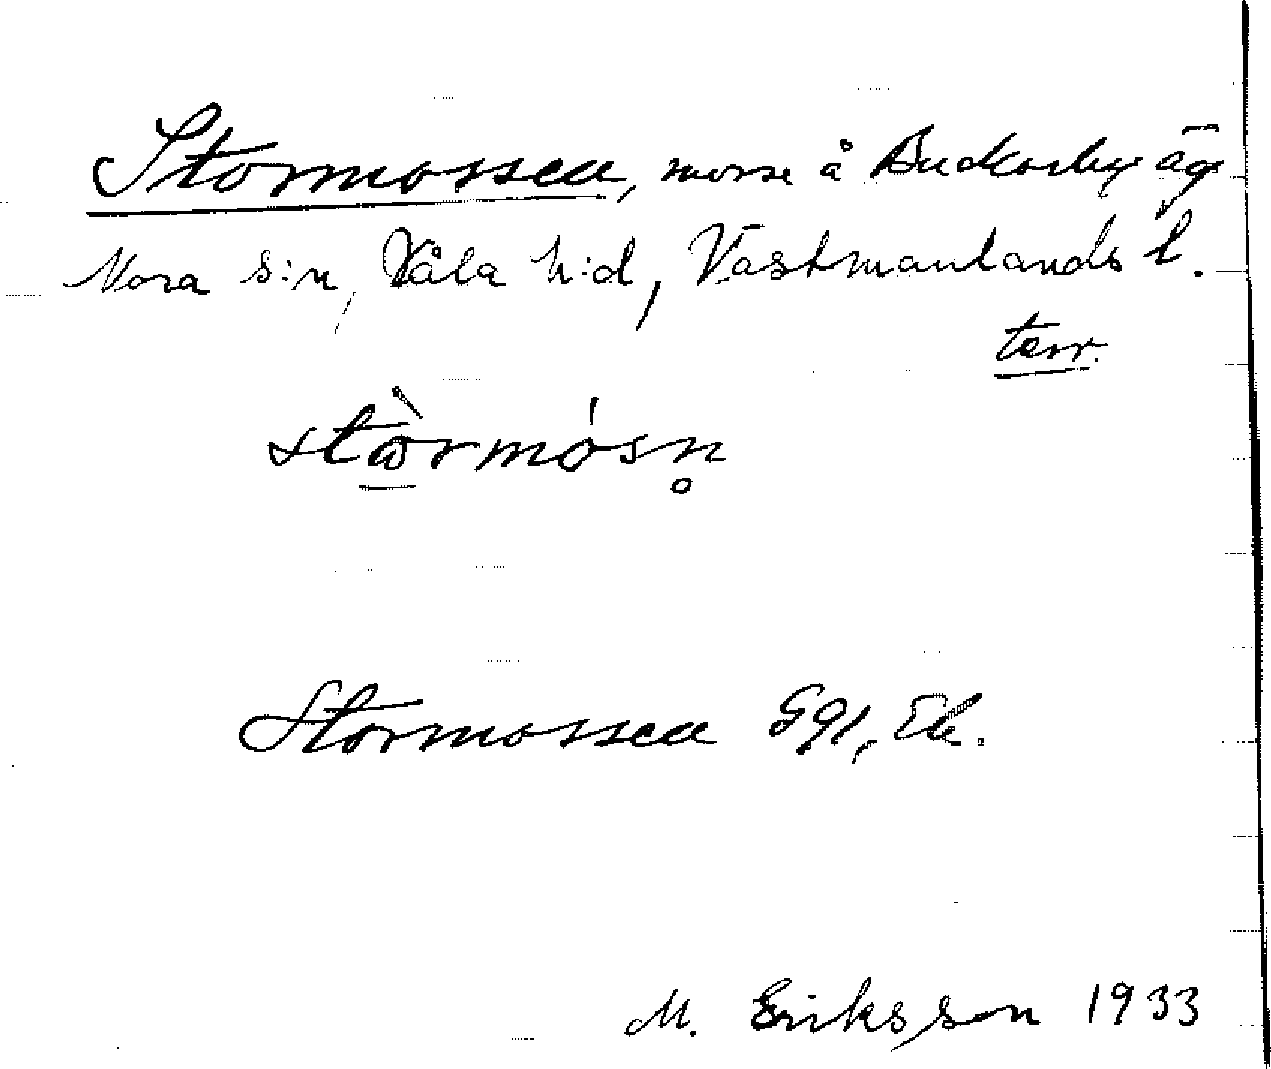 Stormossen, mosse å Buckarby äg
Nora s:n, Våla h:d, Västmanlands l.
terr.
stòrmósn̥
Stormossen Ggl, Ek.
M. Eriksson 1933